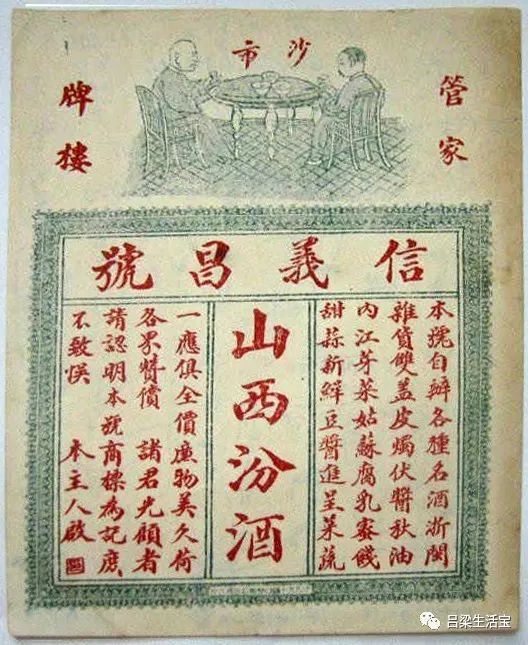 沙市
管家
牌樓
信義昌號
本號自辦各種名酒浙閩
雜貨雙盖皮燭伏醬秋油
内江芽菜姑蘇腐乳蜜餞
甜蒜新鮮豆醬進呈菜蔬
山西汾酒
一應俱全價廉物美久荷
各界贊價 諸君光顧者
請認明本號商標為記庶
不致悮 本主人啟
吕梁生活宝